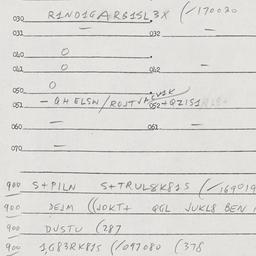 030 R1ND1GARG1SL3X (/170020
031 — 032 —
040 0
041 0 042 —
050 0
051 — QHELSN/ROJT 052
060 —
061 —
070 —
900 S+PILN S+TRUL8K81S (/169019
900 DEJM ((JOKT+ QGL JUKL8 BEN
900 DUSTU (287
900 1,G83RK81S (/097080 (378